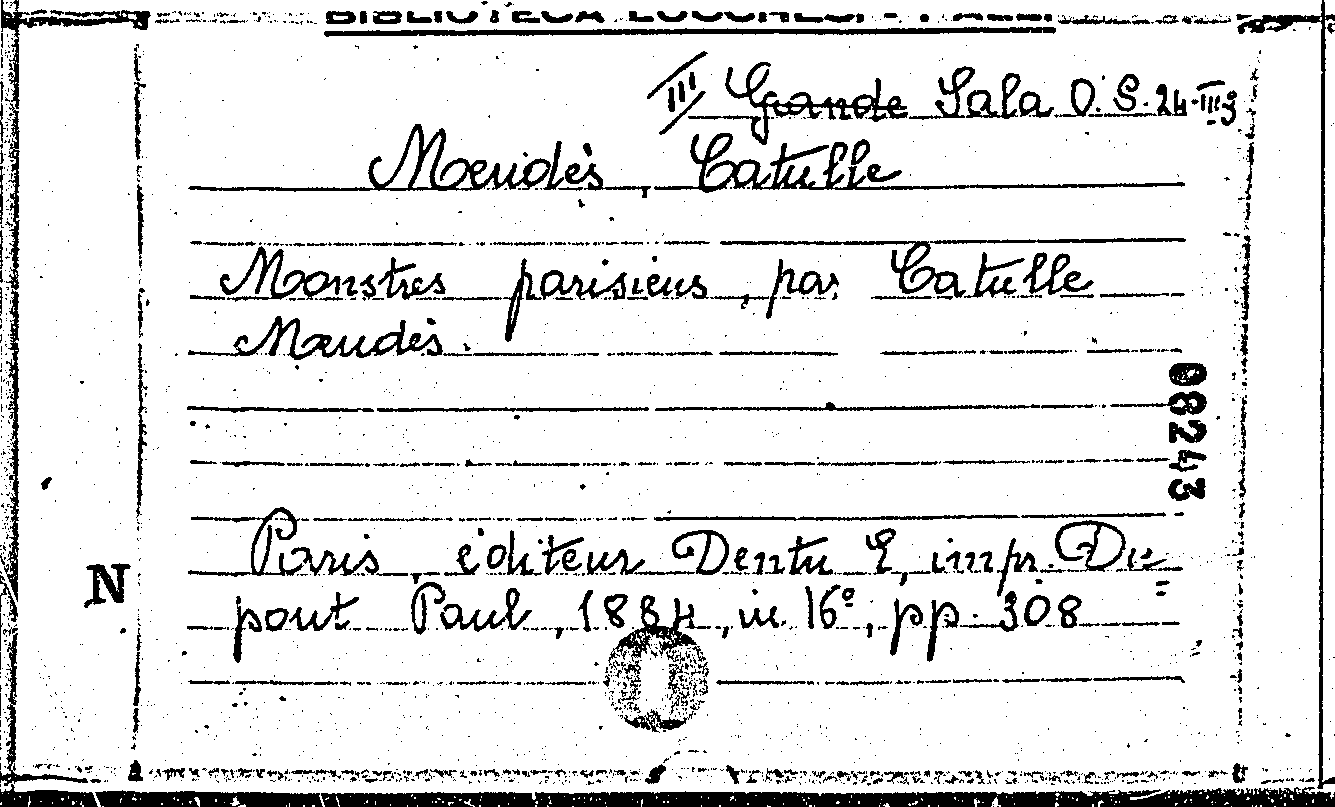 BIBLIOTECA LUCCHESI - PALLI
III ~~Grande~~ Sala O. S. 24-III 9
Mendès, Catulle
Monstres parisiens, par Catulle
Mendès.
08243
Paris, éditeur Dentu E, impr. Du=
pont Paul, 1884, in 16º, pp. 308
N